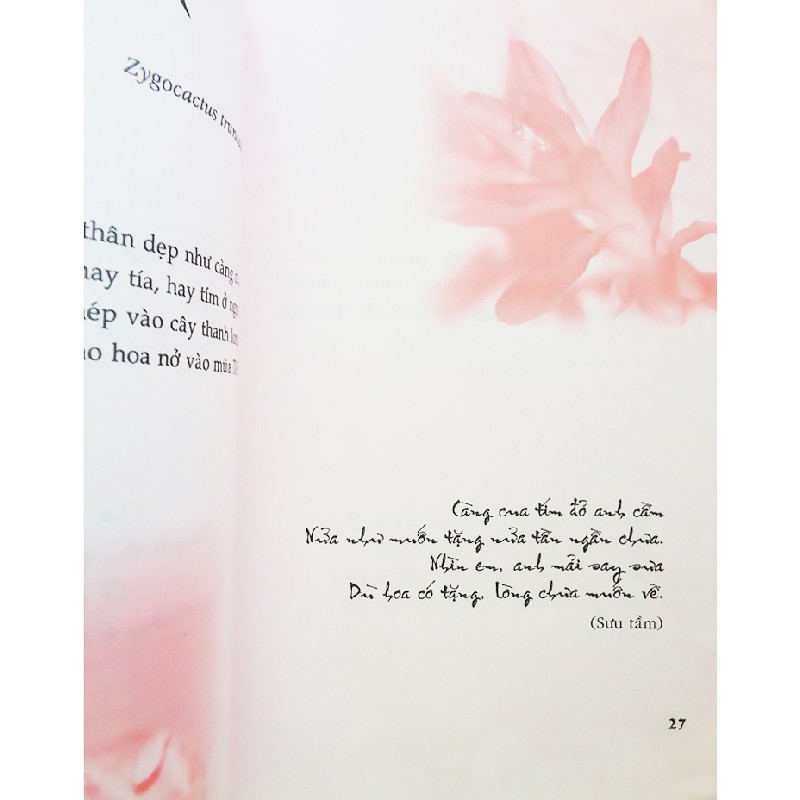 Zygocactus
thân dẹp như càng
hay tía, hay tím ở
vào cây thanh
hoa nở vào mùa
Càng cua tím đỏ anh cầm
Nửa như muốn tặng nửa tần ngần chưa.
Nhìn em, anh mãi say sưa
Dù hoa có tặng, lòng chưa muốn về.
(Sưu tầm)
27